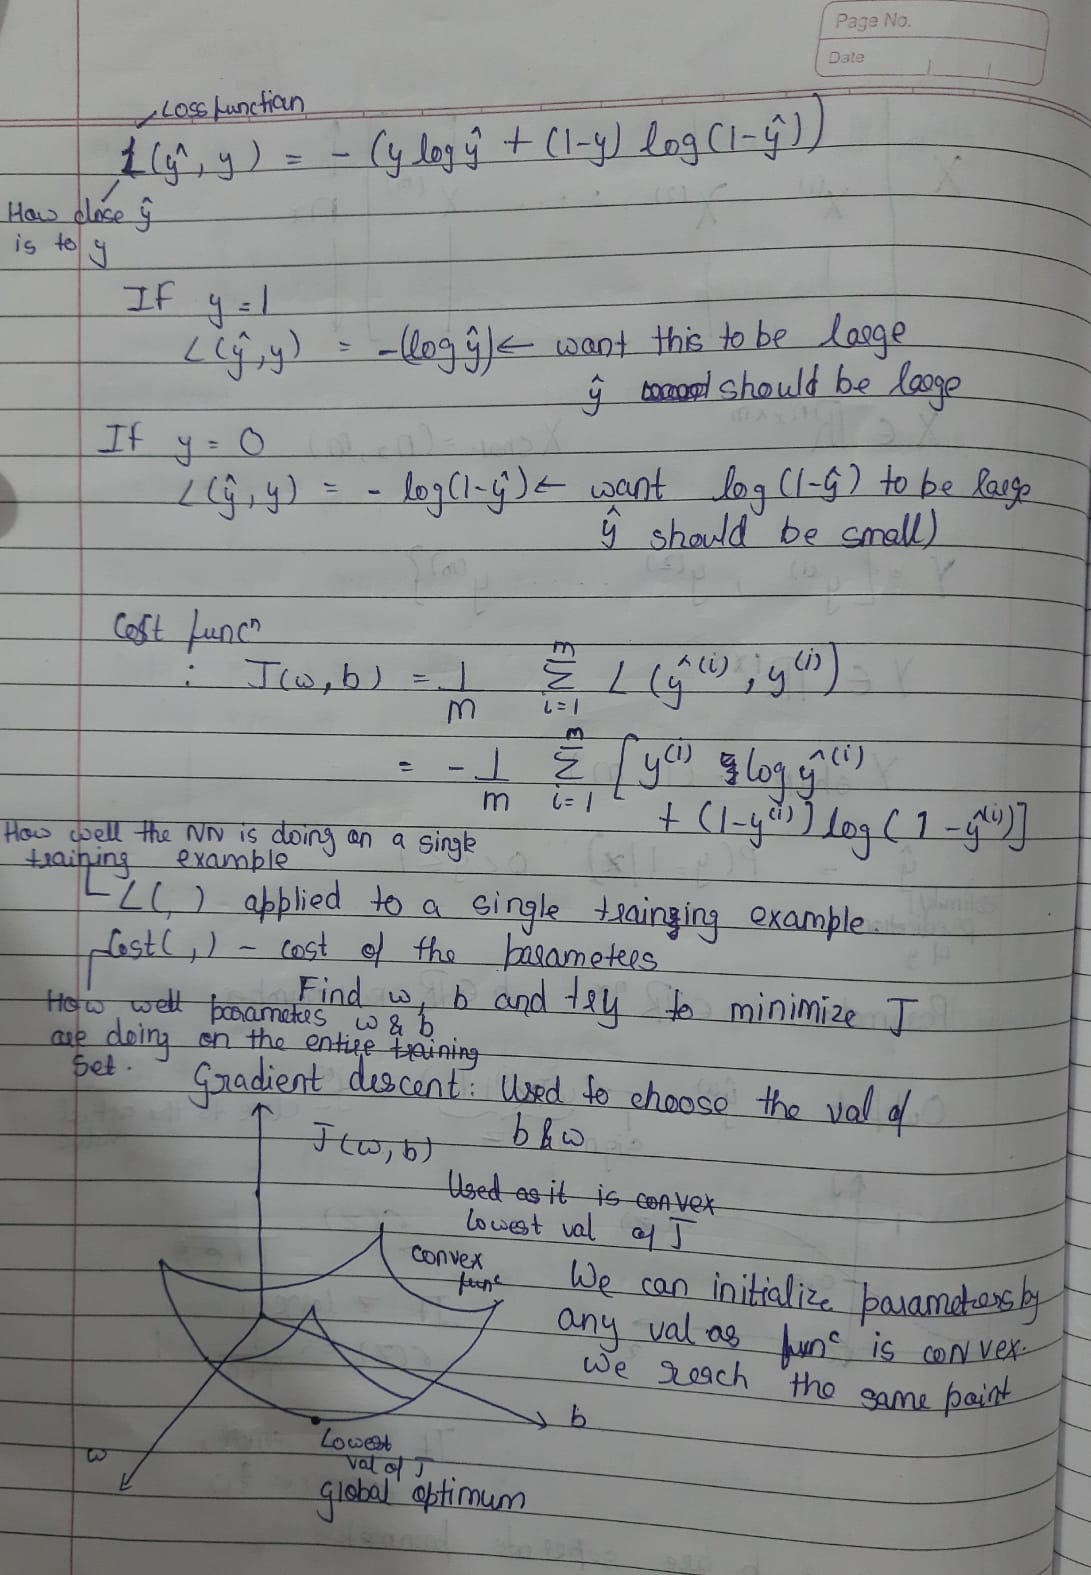 Page No.
Date
Loss function
L(ŷ, y) = - (y log ŷ + (1-y) log (1-ŷ))
How close ŷ
is to y
If y = 1
L(ŷ, y) = -(log ŷ) ← want this to be large
ŷ should be large
If y = 0
L(ŷ, y) = - log(1-ŷ) ← want log (1-ŷ) to be large
ŷ should be small)
Cost funcⁿ
: J(w, b) = 1/m Σ_{i=1}^{m} L (ŷ^(i), y^(i))
= - 1/m Σ_{i=1}^{m} [ y^(i) log ŷ^(i)
+ (1-y^(i)) log (1 - ŷ^(i))]
How well the NN is doing on a single
training example
L(,) applied to a single trainging example.
Cost(,) - cost of the parameters
Find w, b and try to minimize J
How well parameters w & b
are doing on the entire training
set.
Gradient descent: Used to choose the val of
b & w
J(w, b)
Used as it is convex
Lowest val of J
convex
funᶜ
We can initialize parameters by
any val as funᶜ is convex.
We reach the same point
b
w
Lowest
val of J
global optimum